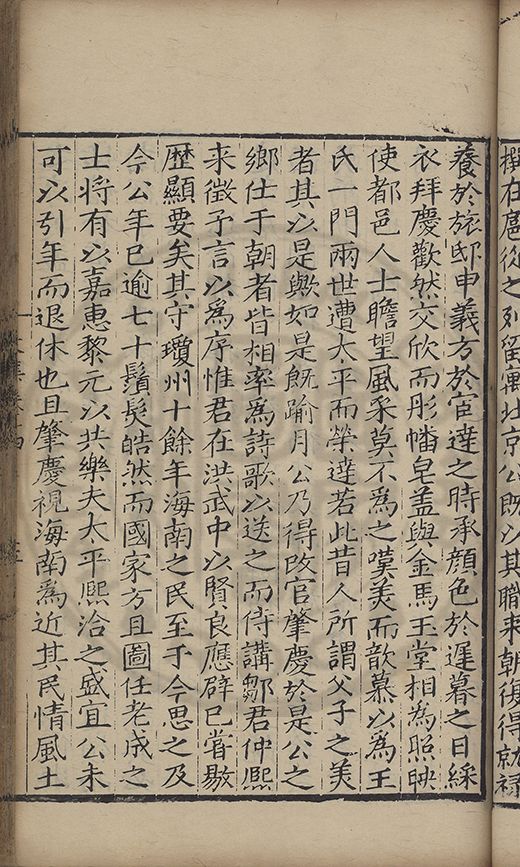 撰在扈從之列留寓北京公既以其職来朝復得就祿
養於旅邸申義方於宦達之時承顔色於遲暮之日綵
衣拜慶歡然交欣而彤幡皂盖與金馬玉堂相為照映
使都邑人士瞻望風采莫不爲之嘆美而歆慕以爲王
氏一門兩世遭太平而榮達若此昔人所謂父子之美
者其以是歟如是既踰月公乃得改官肇慶於是公之
鄉仕于朝者皆相率爲詩歌以送之而侍講鄒君仲熈
来徵予言以爲序惟君在洪武中以賢良應辟已嘗敭
歴顯要矣其守瓊州十餘年海南之民至于今思之及
今公年已逾七十鬚髮皓然而國家方且圖任老成之
士將有以嘉惠黎元以共樂夫太平熈洽之盛宜公未
可以引年而退休也且肇慶視海南爲近其民情風土